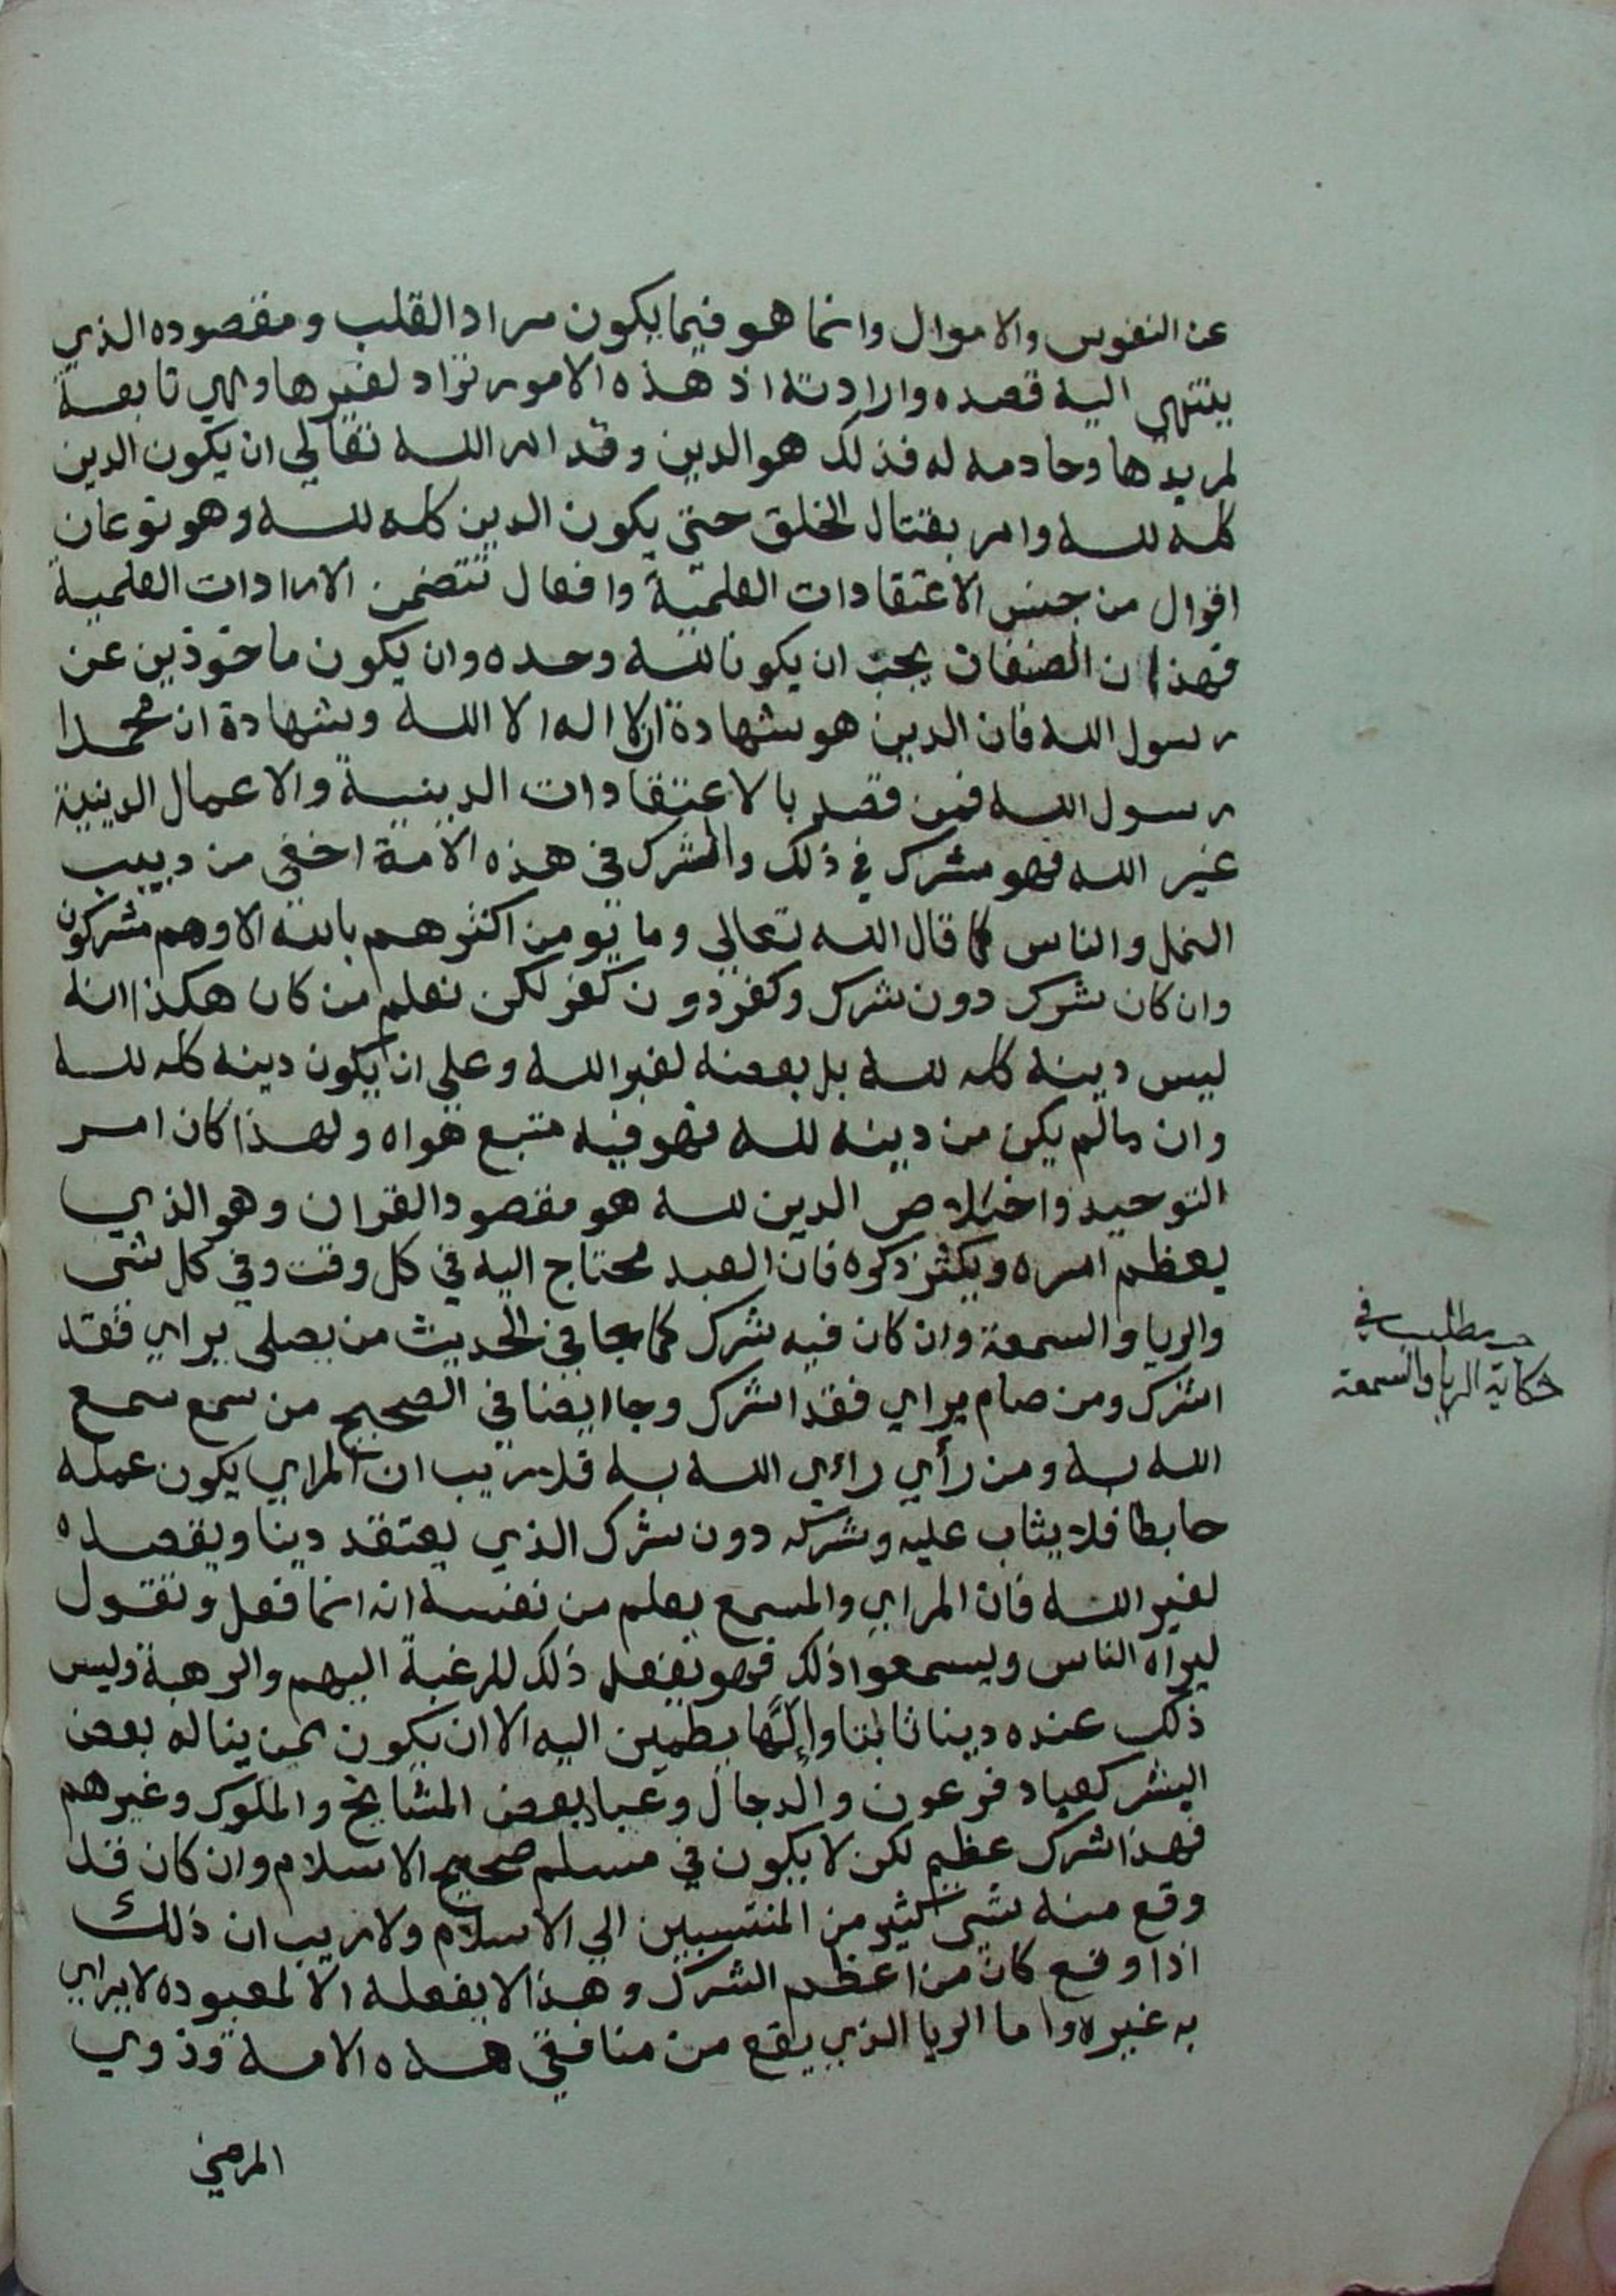 عن النفوس والاموال وانما هو فيما يكون مراد القلب ومقصوده الذي
ينتهي اليه قصده وارادته اذ هذه الامور تراد لغيرها وهي تابعة
لمريدها وخادمه له فذلك هو الدين وقد امر الله تعالي ان يكون الدين
كله لله وامر بقتال الخلق حتي يكون الدين كله لله وهو نوعان
اقوال من جنس الاعتقادات العلمية وافعال تتضمن الارادات العلمية
فهذان الصنفان يجب ان يكونا لله وحده وان يكون ماخوذين عن
رسول الله فان الدين هو شهادة ان لا اله الا الله وشهادة ان محمدا
رسول الله فمن قصد بالاعتقادات الدينية والاعمال الدينية
غير الله فهو مشرك في ذلك والشرك في هذه الامة اخفي من دبيب
النمل والناس كما قال الله تعالي وما يومن اكثرهم بالله الا وهم مشركون
وان كان شرك دون شرك وكفر دون كفر لكن نعلم من كان هكذا انه
ليس دينه كله لله بل بعضه لغير الله وعلي ان يكون دينه كله لله
وان مالم يكن من دينه لله فهو فيه متبع هواه ولهذا كان امر
التوحيد واخلاص الدين لله هو مقصود القران وهو الذي
يعظم امره ويكثر ذكره فان العبد محتاج اليه في كل وقت وفي كل شي
والريا والسمعة وان كان فيه شرك كما جا في الحديث من يصلي يراي فقد
اشرك ومن صام يراي فقد اشرك وجا ايضا في الصحيح من سمع سمع
الله به ومن رأي راءي الله به فلا ريب ان المراي يكون عمله
حابطا فلا يثاب عليه وشركه دون شرك الذي يعتقد دينا ويقصده
لغير الله فان المراي والمسمع يعلم من نفسه انه انما فعل وتقول
ليراه الناس ويسمعوا ذلك فهو يفعل ذلك للرغبة اليهم والرهبة وليس
ذلك عنده دينا ثابتا وإلهًا يطمين اليه الا ان يكون ممن يناله بعض
البشر كعباد فرعون والدجال وعباد بعض المشايخ والملوك وغيرهم
فهذا شرك عظيم لكن لا يكون في مسلم صحيح الاسلام وان كان قد
وقع منه شي كثير من المنتسبين الي الاسلام ولا ريب ان ذلك
اذا وقع كان من اعظم الشرك وهذا لا يفعله الا لمعبوده لا يراي
به غيره واما الريا الذي يقع من منافقي هذه الامة وذوي
المرضي
مطلب في
حكاية الريا والسمعة